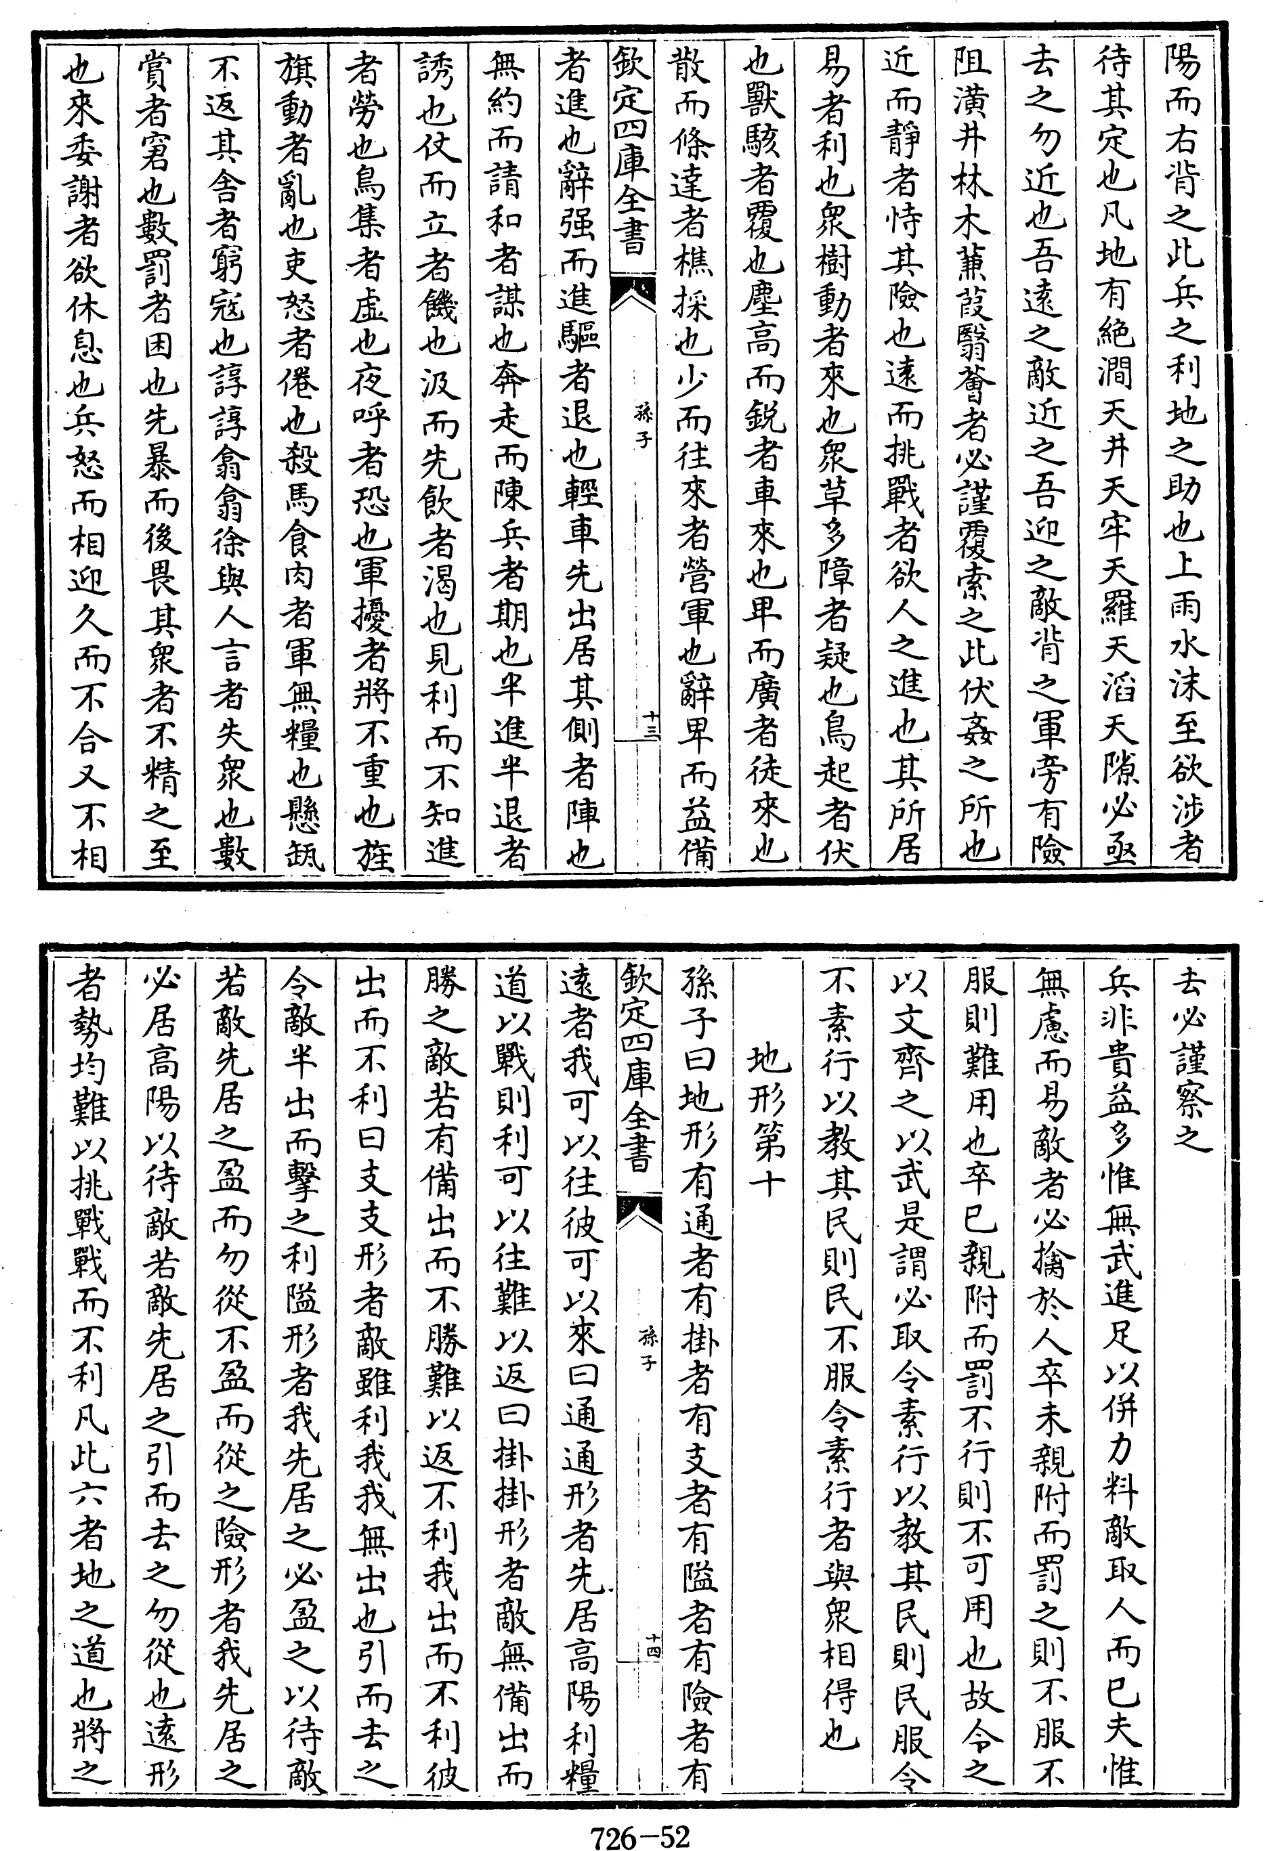 陽而右背之此兵之利地之助也上雨水沫至欲涉者
待其定也凡地有絶澗天井天牢天羅天滔天隙必亟
去之勿近也吾遠之敵近之吾迎之敵背之軍旁有險
阻潢井林木蒹葭翳薈者必謹覆索之此伏姦之所也
近而靜者恃其險也遠而挑戰者欲人之進也其所居
易者利也衆樹動者來也衆草多障者疑也鳥起者伏
也獸駭者覆也塵高而鋭者車來也卑而廣者徒來也
散而條達者樵採也少而往來者營軍也辭卑而益備
欽定四庫全書
孫子
十三
者進也辭强而進驅者退也輕車先出居其側者陣也
無約而請和者謀也奔走而陳兵者期也半進半退者
誘也仗而立者饑也汲而先飲者渴也見利而不知進
者勞也鳥集者虛也夜呼者恐也軍擾者將不重也旌
旗動者亂也吏怒者倦也殺馬食肉者軍無糧也懸缻
不返其舎者窮寇也諄諄翕翕徐與人言者失衆也數
賞者窘也數罰者困也先暴而後畏其衆者不精之至
也來委謝者欲休息也兵怒而相迎久而不合又不相
去必謹察之
兵非貴益多惟無武進足以併力料敵取人而已夫惟
無慮而易敵者必擒於人卒未親附而罰之則不服不
服則難用也卒已親附而罰不行則不可用也故令之
以文齊之以武是謂必取令素行以教其民則民服令
不素行以教其民則民不服令素行者與衆相得也
地形第十
孫子曰地形有通者有掛者有支者有隘者有險者有
欽定四庫全書
孫子
十四
遠者我可以往彼可以來曰通通形者先居高陽利糧
道以戰則利可以往難以返曰掛掛形者敵無備出而
勝之敵若有備出而不勝難以返不利我出而不利彼
出而不利曰支支形者敵雖利我我無出也引而去之
令敵半出而擊之利隘形者我先居之必盈之以待敵
若敵先居之盈而勿從不盈而從之險形者我先居之
必居高陽以待敵若敵先居之引而去之勿從也遠形
者勢均難以挑戰戰而不利凡此六者地之道也將之
726-52